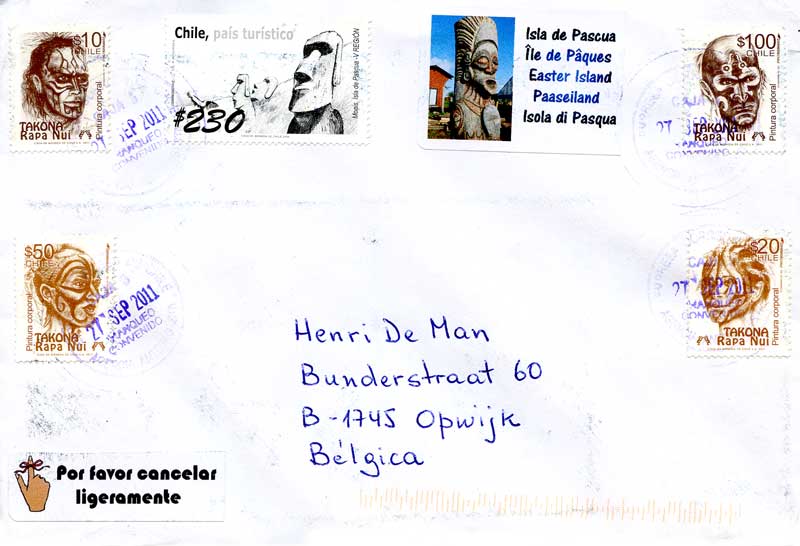 $10
CHILE
Pintura corporal
TAKONA
Rapa Nui
27 SEP 2011
FRANQUEO
CONVENIDO
Chile, país turístico
Moais, Isla de Pascua -V REGIÓN
$230
Isla de Pascua
Île de Pâques
Easter Island
Paaseiland
Isola di Pasqua
$100
CHILE
Pintura corporal
TAKONA
Rapa Nui
27 SEP 2011
FRANQUEO
CONVENIDO
$50
CHILE
Pintura corporal
TAKONA
Rapa Nui
27 SEP 2011
FRANQUEO
CONVENIDO
$20
CHILE
Pintura corporal
TAKONA
Rapa Nui
27 SEP 2011
FRANQUEO
CONVENIDO
Henri De Man
Bunderstraat 60
B-1745 Opwijk
Bélgica
Por favor cancelar
ligeramente